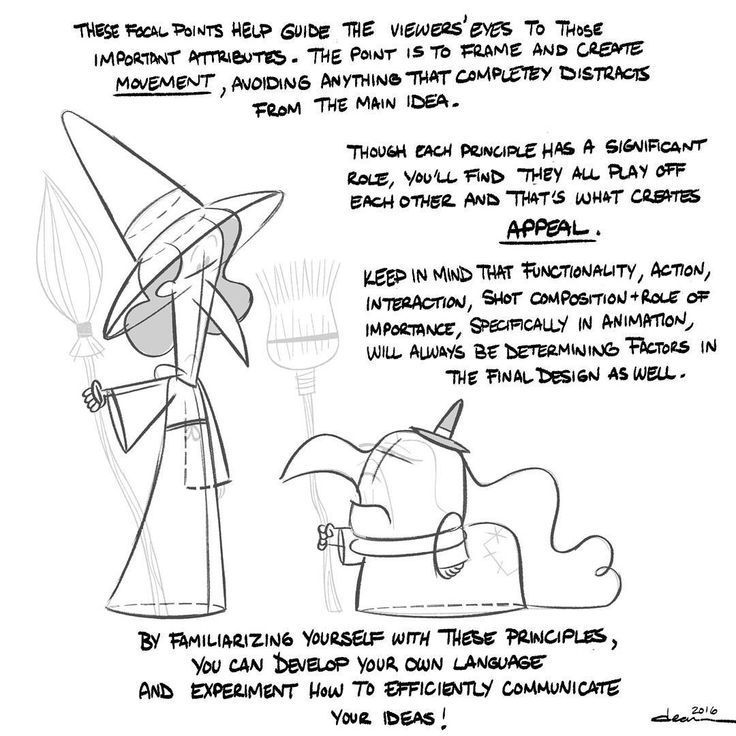 THESE FOCAL POINTS HELP GUIDE THE VIEWERS' EYES TO THOSE
IMPORTANT ATTRIBUTES. THE POINT IS TO FRAME AND CREATE
MOVEMENT, AVOIDING ANYTHING THAT COMPLETEY DISTRACTS
FROM THE MAIN IDEA.
THOUGH EACH PRINCIPLE HAS A SIGNIFICANT
ROLE, YOU'LL FIND THEY ALL PLAY OFF
EACH OTHER AND THAT'S WHAT CREATES
APPEAL.
KEEP IN MIND THAT FUNCTIONALITY, ACTION,
INTERACTION, SHOT COMPOSITION + ROLE OF
IMPORTANCE, SPECIFICALLY IN ANIMATION,
WILL ALWAYS BE DETERMINING FACTORS IN
THE FINAL DESIGN AS WELL.
BY FAMILIARIZING YOURSELF WITH THESE PRINCIPLES,
YOU CAN DEVELOP YOUR OWN LANGUAGE
AND EXPERIMENT HOW TO EFFICIENTLY COMMUNICATE
YOUR IDEAS!
2016